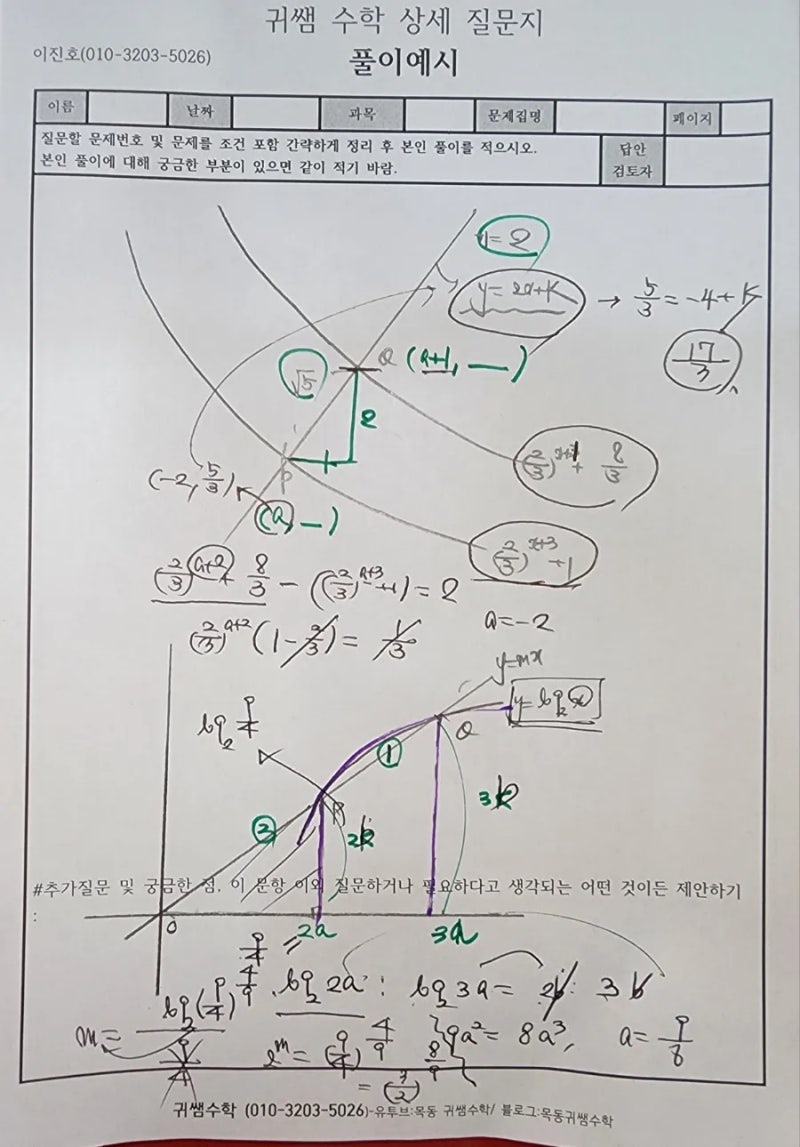 귀쌤 수학 상세 질문지
이진호(010-3203-5026)
풀이예시
이름 날짜 과목 문제집명 페이지
질문할 문제번호 및 문제를 조건 포함 간략하게 정리 후 본인 풀이를 적으시오.
본인 풀이에 대해 궁금한 부분이 있으면 같이 적기 바람.
답안
검토자
y=2x+k → 5/3 = -4+k
17/3
√5 Q (a+1, __)
2
(-2, 5/3) P
(a, __)
(2/3)^(x+3) +1
(2/3)^(a+2) + 8/3 - ((2/3)^(a+3) +1) = 2
a=-2
(2/3)^(a+2) (1-2/3) = 1/3
y=mx
y=log₂x
log₂ 9/4
① Q
② P 2k 3k
#추가질문 및 궁금한 점, 이 문항 이외 질문하거나 필요하다고 생각되는 어떤 것이든 제안하기
:
0 2a 3a
9/4
log₂2a : log₂3a = 2k : 3k
m = log₂(9/4) / (9/4)
9a² = 8a³, a = 9/8
2^m = (9/4)^(4/9)
= (3/2)^(8/9)
귀쌤수학 (010-3203-5026)-유투브:목동 귀쌤수학/ 블로그:목동귀쌤수학